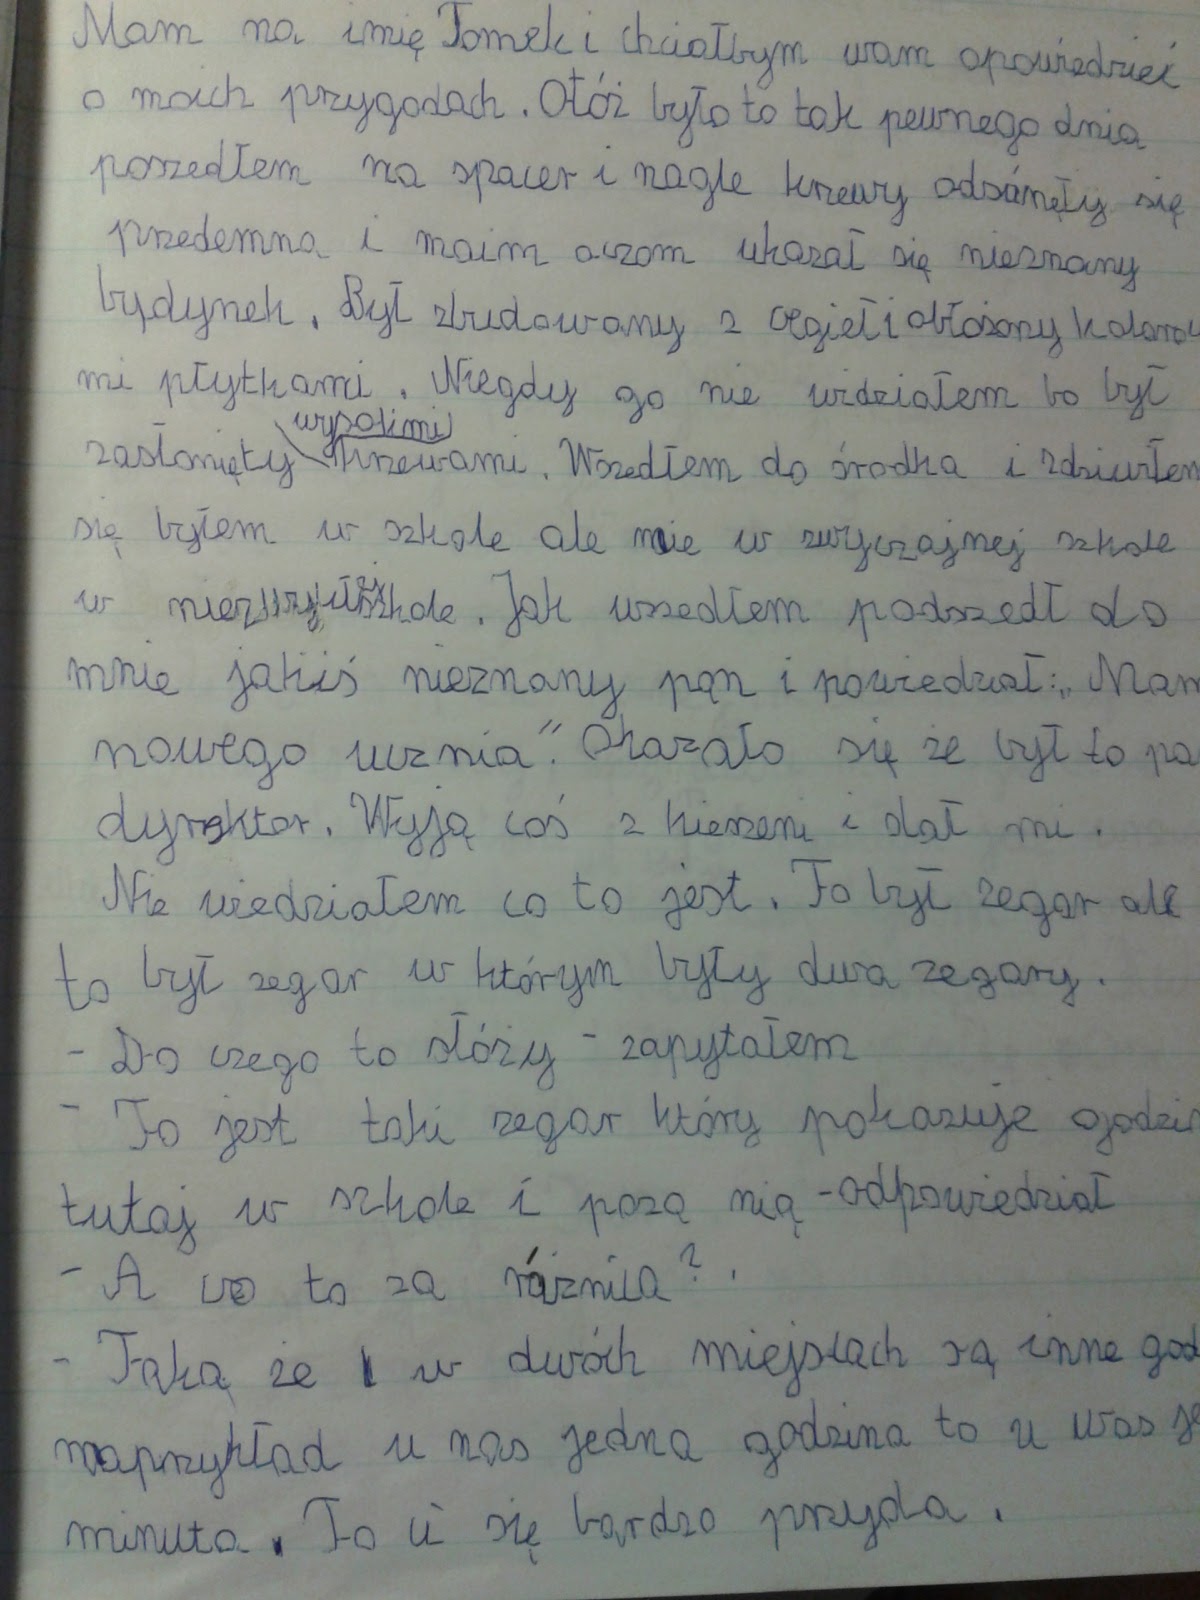 Mam na imię Tomek i chciałbym wam opowiedzieć
o moich przygodach. Otóż było to tak pewnego dnia
poszedłem na spacer i nagle krzewy odsónęły się
przedemną i moim oczom ukazał się nieznany
bydynek. Był zbudowany z cegieł i obłożony kolorow
mi płytkami. Niegdy go nie widziałem bo był
wysokimi
zasłonięty krzewami. Wszedłem do środka i zdziwiłem
się byłem w szkole ale nie w zwyczajnej szkole
w szkole. Jak wszedłem podszedł do
mnie jakiś nieznany pan i powiedział: „Mam
nowego ucznia". Okazało się że był to pa
dyrektor. Wyją coś z kieszeni i dał mi.
Nie wiedziałem co to jest. To był zegar ale
to był zegar w którym były dwa zegary.
- Do czego to słóży - zapytałem
- To jest taki zegar który pokazuje godzin
tutaj w szkole i pozą nią - odpowiedział
- A co to za róznica?.
- Taką że w dwóch miejscach są inne god
naprzykład u nas jedna godzina to u was je
minuta. To ci się bardzo przyda.